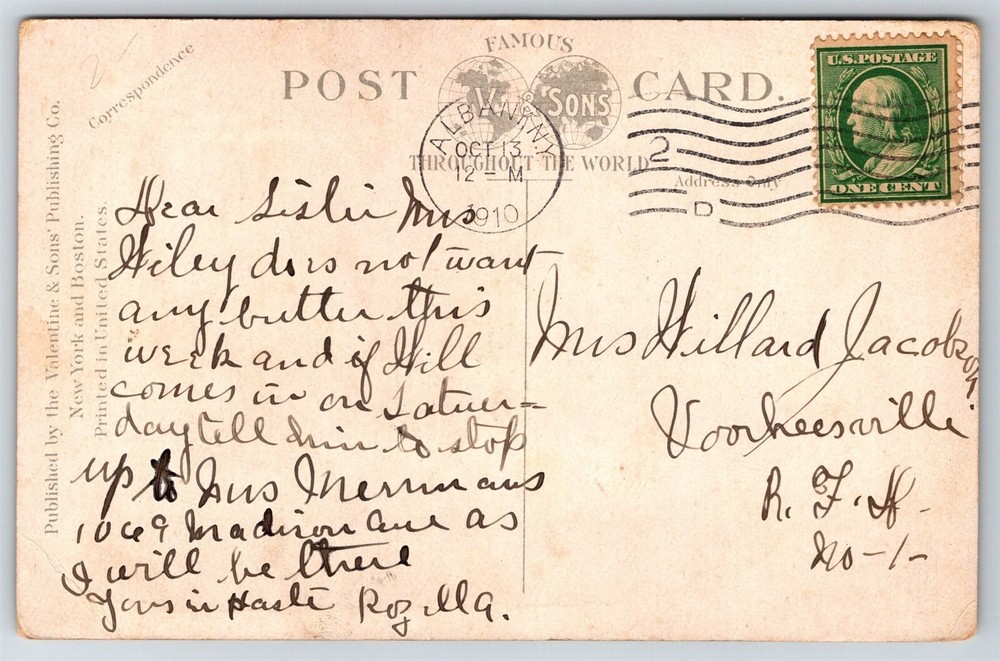 FAMOUS
POST CARD.
V. & SONS
THROUGHOUT THE WORLD
Correspondence
Address Only
Published by the Valentine & Sons' Publishing Co.
New York and Boston.
Printed in United States.
ALBANY, N.Y.
OCT 13
12 - M
1910
2
D
U.S. POSTAGE
ONE CENT
Dear Sister Mrs
Wiley does not want
any butter this
week and if Will
comes in on Satuer=
day tell him to stop
up to Mrs Merrimans
1069 Madison Ave as
I will be there
Yours in Haste Rozilla.
Mrs Willard Jacobson
Voorheesville
R. F. D.
No - 1 -